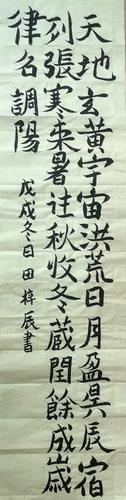 天地玄黃宇宙洪荒日月盈昃辰宿
列張寒来暑往秋收冬藏閏餘成歳
律名調陽
戊戌冬日田梓辰書